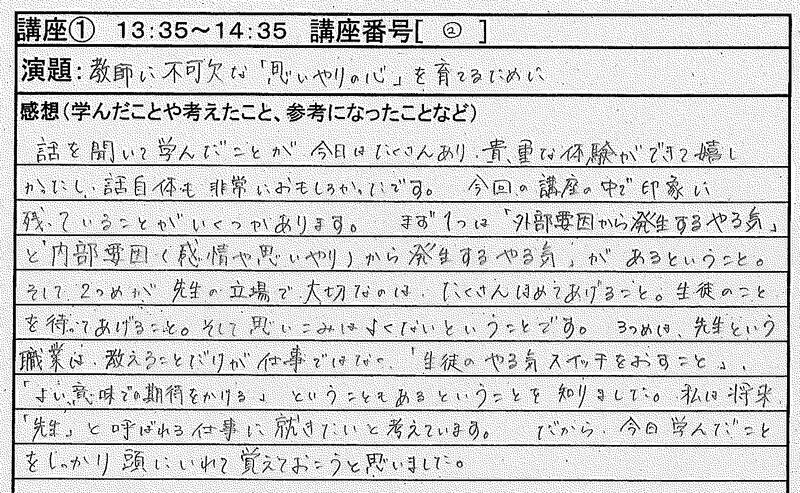 講座① 13:35～14:35 講座番号[ ② ]
演題:教師に不可欠な「思いやりの心」を育てるために
感想(学んだことや考えたこと、参考になったことなど)
話を聞いて学んだことが今日はたくさんあり、貴重な体験ができて嬉し
かったし、話自体も非常におもしろかったです。 今回の講座の中で印象に
残っていることがいくつかあります。 まず1つは「外部要因から発生するやる気」
と「内部要因(感情や思いやり)から発生するやる気」があるということ。
そして2つめが先生の立場で大切なのは、たくさんほめてあげること。生徒のこと
を待ってあげること。そして思いこみはよくないということです。 3つめは、先生という
職業は、教えることだけが仕事ではなく、「生徒のやる気スイッチをおすこと」、
「よい意味での期待をかける」ということもあるということを知りました。私は将来、
「先生」と呼ばれる仕事に就きたいと考えています。 だから、今日学んだこと
をしっかり頭にいれて覚えておこうと思いました。